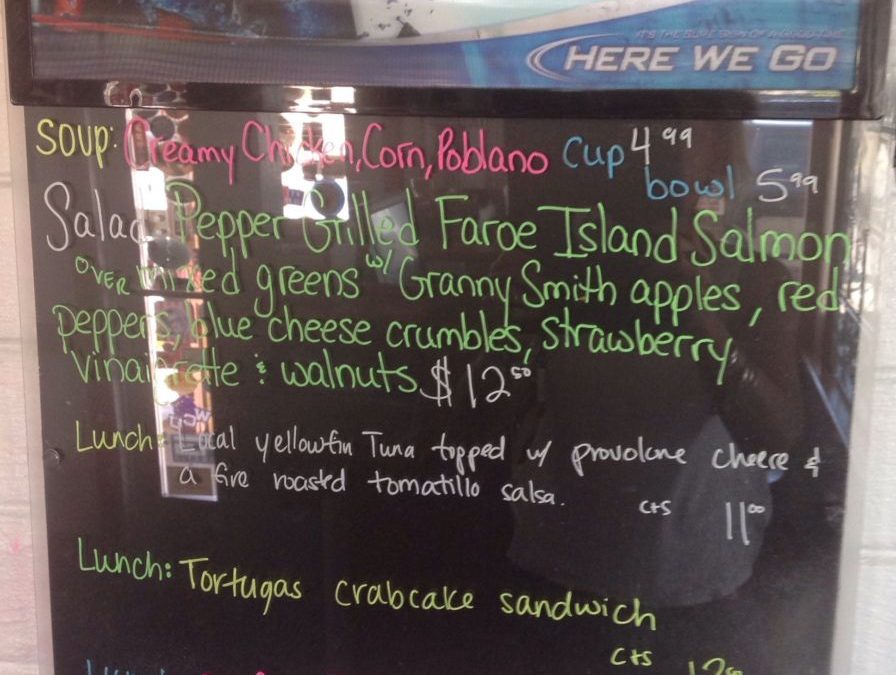 IT'S THE SURE SIGN OF A GOOD TIME
HERE WE GO
SOUP: Creamy Chicken, Corn, Poblano Cup 4 99
bowl 5 99
Salad Pepper Grilled Faroe Island Salmon
OVER mixed greens w/ Granny Smith apples, red
peppers, blue cheese crumbles, strawberry
vinaigrette & walnuts $12 50
Lunch: Local yellowfin Tuna topped w/ provolone cheese &
a fire roasted tomatillo salsa.
cts 11 00
Lunch: Tortugas crabcake sandwich
cts